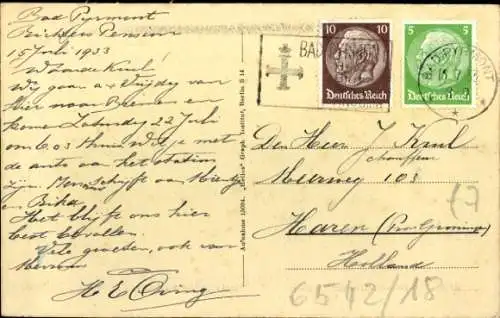 Bad Pyrmont
Richters Pension
15 Juli 1933
Waarde Krul
Wij gaan a.s. Vrijdag van
Hier naar Bremen en
kome Zaterdag 22 Juli
om 6.03 thuis wil je met
de auto aan het station
zijn. Mevr schrijft van
en Bika.
Het blijft ons hier
best bevallen.
Vele groeten, ook van
Mevrouw
H E Oving
Aufnahme 15094. "Helios" Graph. Institut, Berlin S 14
BAD PYRMONT
10 10
Deutsches Reich
5 5
Deutsches Reich
BAD PYRMONT
Den Heer J Krul
chauffeur
Meerweg 103
Haren (Prov Groningen)
Holland
£7
6542/18